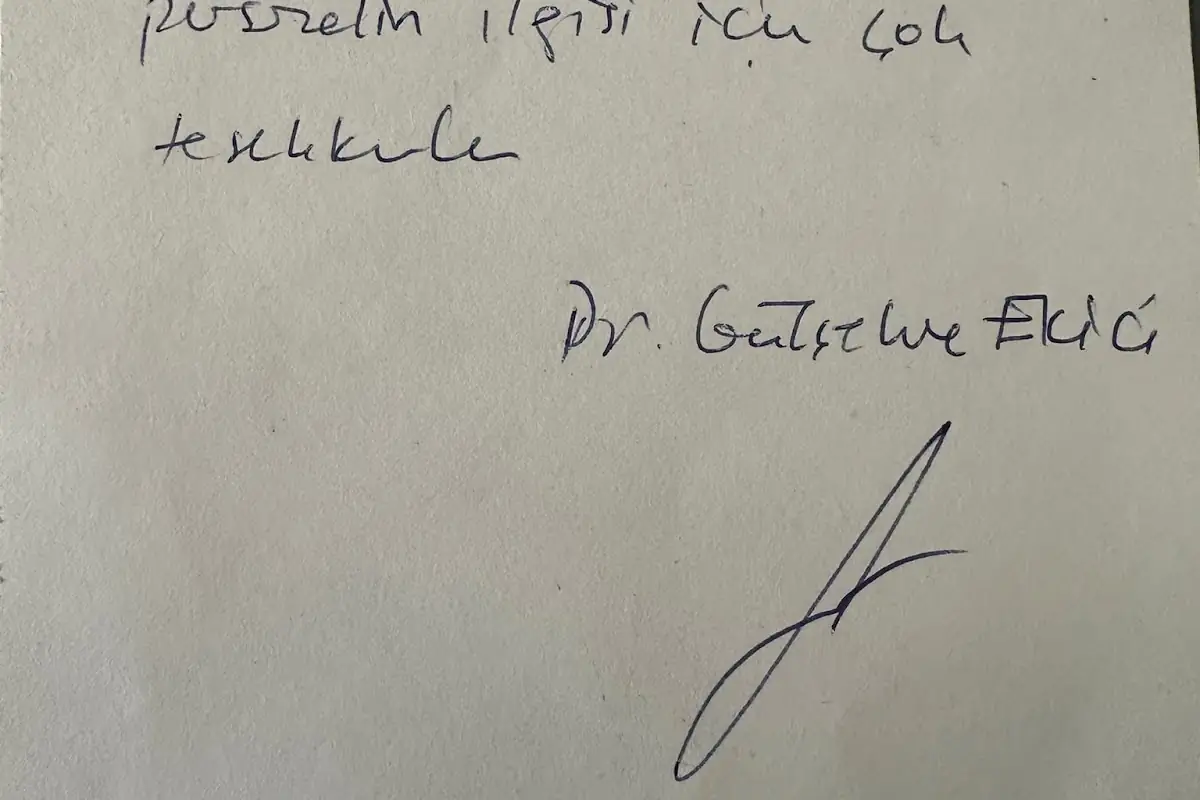 personelin ilgisi için çok
teşekkürler
Dr. Gülşelve Ekici